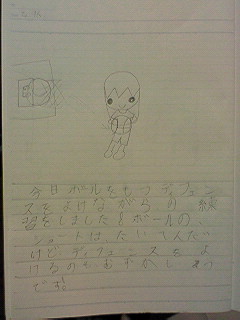 今日ボールをもつディフェン
スをよけながらの練
習をしました！ボールの
シュートは、たいへんだ
けどディフェンスをよ
けるのもむずかしかっ
です!